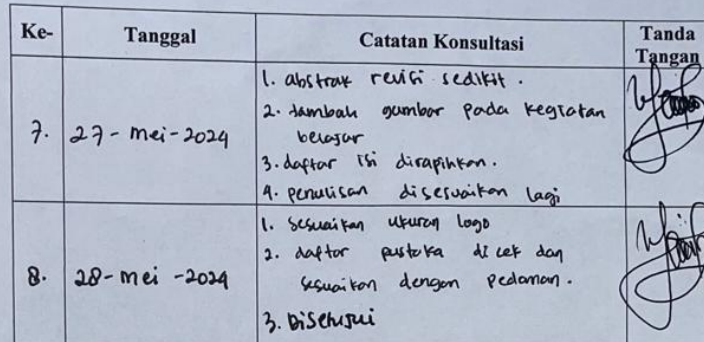 Ke- Tanggal Catatan Konsultasi Tanda Tangan
7. 27-mei-2024
1. abstrak revisi sedikit.
2. tambah gambar pada kegiatan
belajar
3. daftar isi dirapihkan.
4. penulisan disesuaikan lagi
8. 28-mei-2024
1. sesuaikan ukuran logo
2. daftar pustaka di cek dan
sesuaikan dengan pedoman.
3. Disetujui